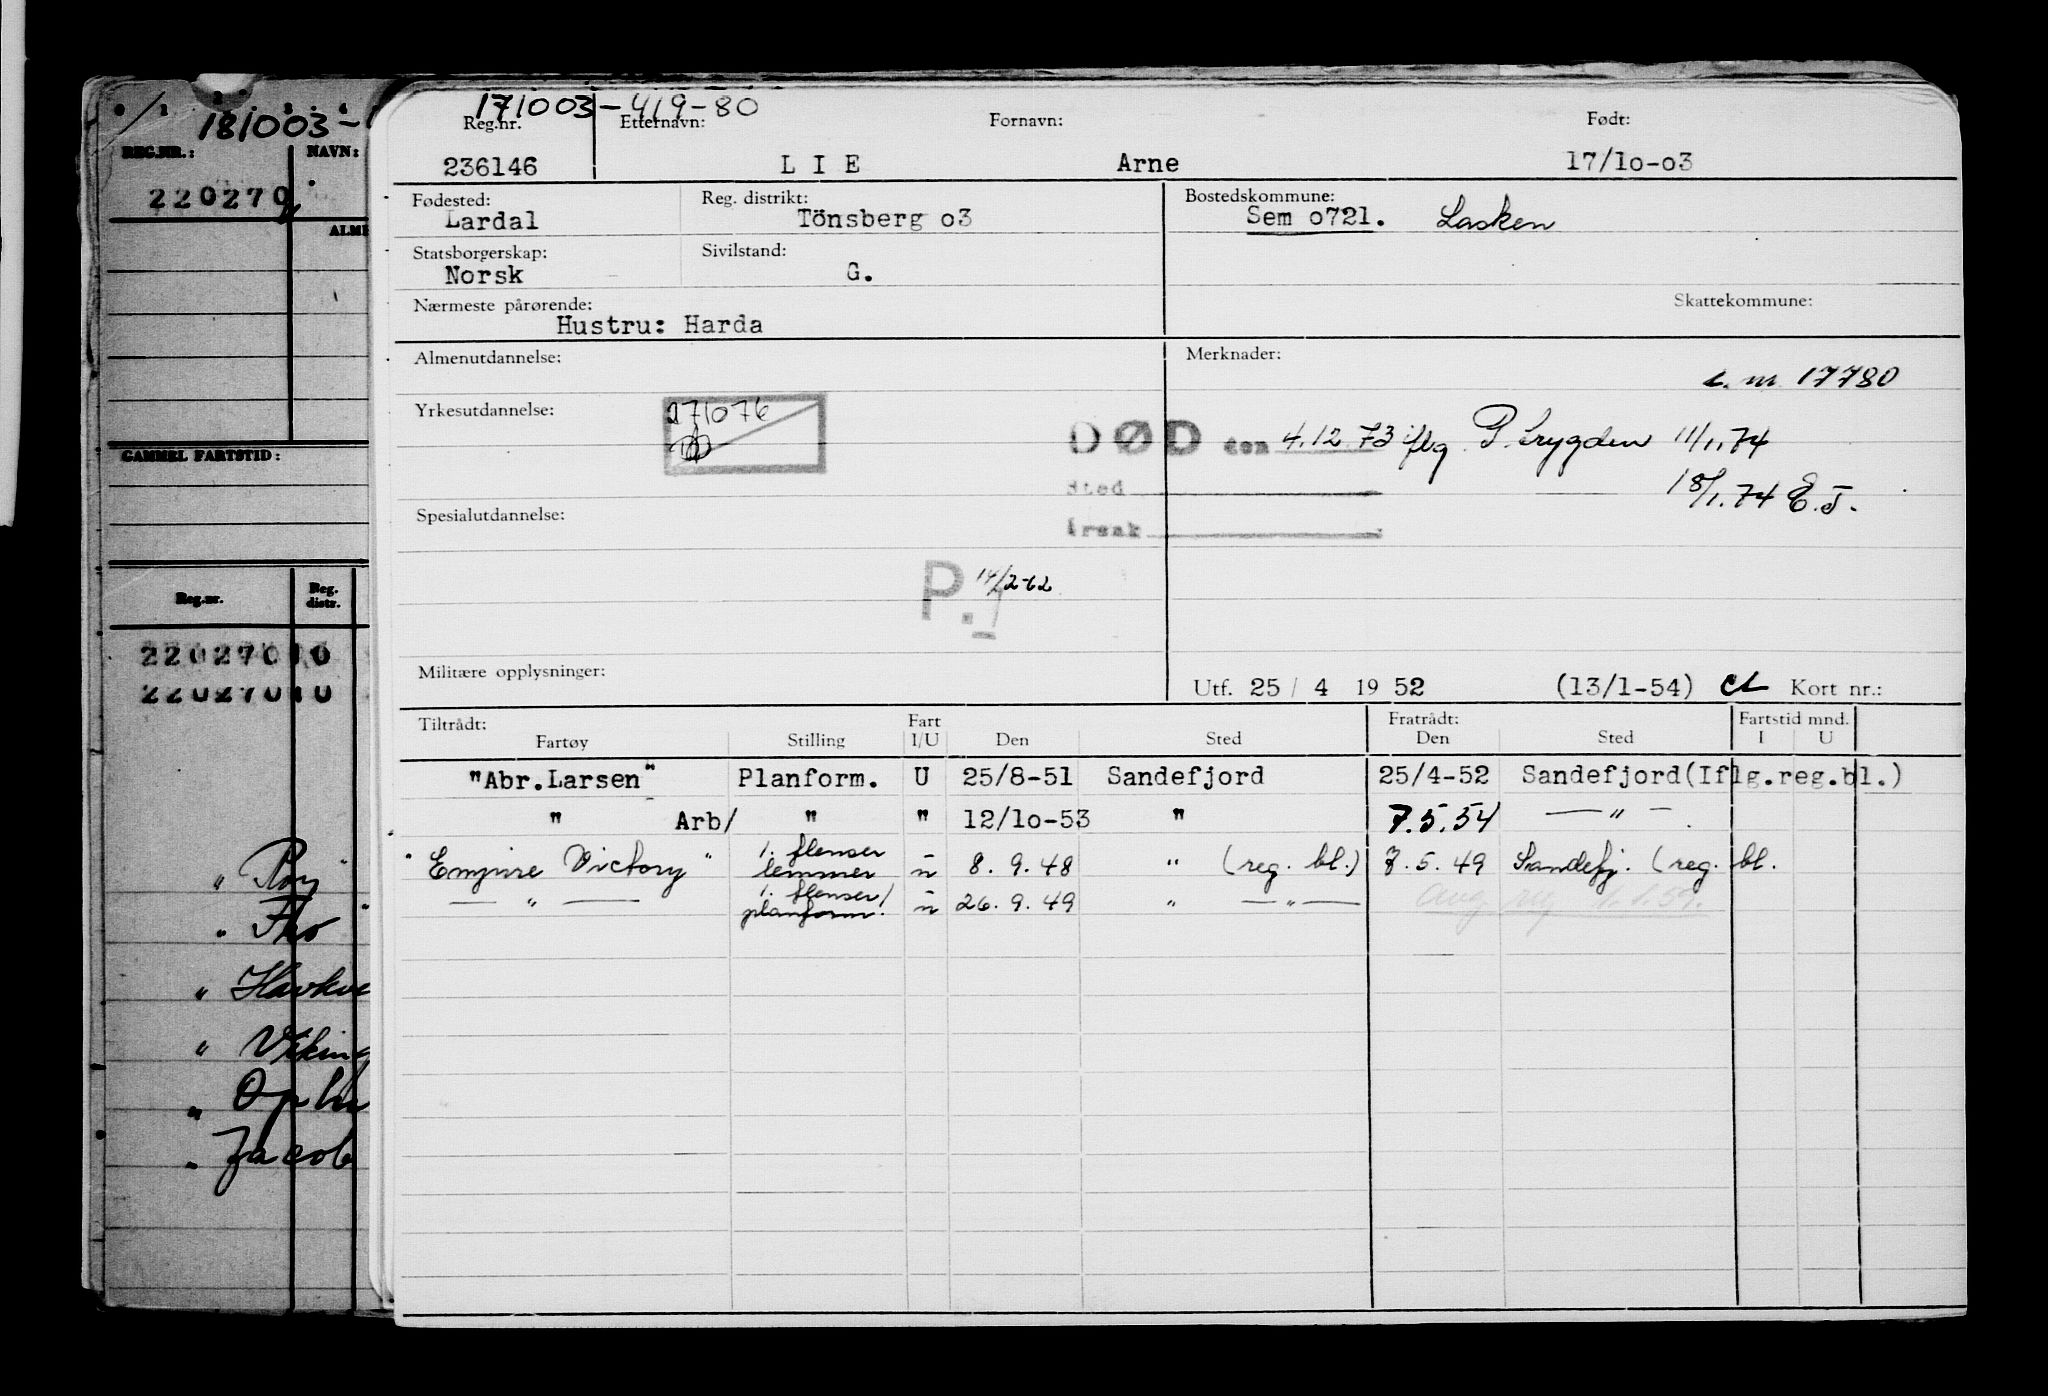 181003-
REG.NR.:
NAVN:
220270
ALME
GAMMEL FARTSTID:
Reg.nr.
Reg. distr.
22027010
22027010
" Roy "
" Tho "
" Havkve
" Viking
" Ophi
" Jacob
171003-419-80
Reg.nr.
Etternavn:
Fornavn:
Født:
236146
LIE
Arne
17/10-03
Fødested:
Lardal
Reg. distrikt:
Tönsberg o3
Bostedskommune:
Sem o721.
Lasken
Statsborgerskap:
Norsk
Sivilstand:
G.
Nærmeste pårørende:
Hustru: Harda
Skattekommune:
Almenutdannelse:
Merknader:
c. m 17780
Yrkesutdannelse:
271076
DØD den 4.12.73 iflg P. trygden 11/1.74
Sted
18/1.74 E.J.
Spesialutdannelse:
Årsak
P. 14/2-62
Militære opplysninger:
Utf. 25 / 4 19 52 (13/1-54) CL Kort nr.:
Tiltrådt:
Fartøy
Stilling
Fart I/U
Den
Sted
Fratrådt:
Den
Sted
Fartstid mnd.
I
U
"Abr.Larsen" Planform. U 25/8-51 Sandefjord 25/4-52 Sandefjord(Iflg.reg.bl.)
" Arb/ " " 12/10-53 " 7.5.54 — " —
"Empire Victory" 1. flenser lemmer u 8.9.48 " (reg. bl.) 7.5.49 Sandefj. (reg. bl.
— " — 1. flenser/ planform. u 26.9.49 " — " —